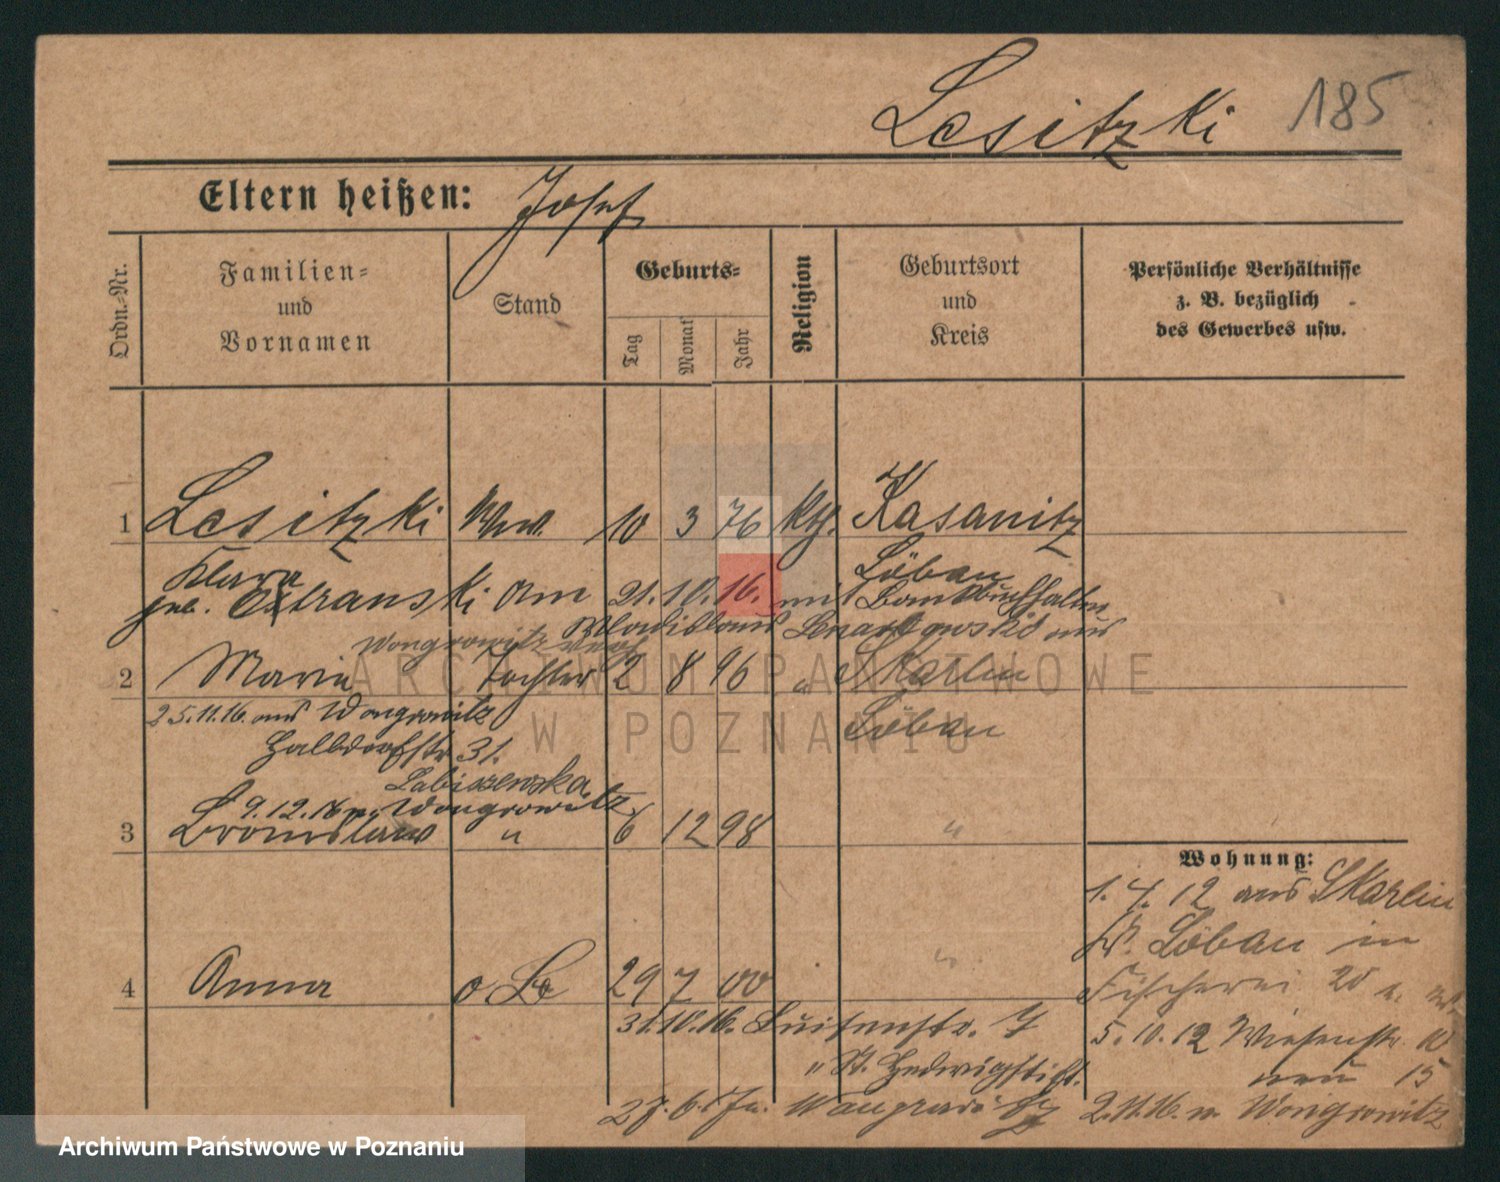 Lesitzki 185
Eltern heißen: Josef
Ordn.-Nr.
Familien- und Vornamen
Stand
Geburts-
Tag Monat Jahr
Religion
Geburtsort und Kreis
Persönliche Verhältnisse z. B. bezüglich des Gewerbes usw.
1 Lesitzki Ww. 10 3 76 Kth. Kasanitz
Klara Löbau
geb. Am 21.10.16. mit Bankbuchhalter
Wladislaus aus
Wongrowitz
2 Maria Tochter 2 8 96 " Skarlin
25.11.16. aus Wongrowitz Löbau
Halbdorfstr 31.
9.12.16 n. Wongrowitz
3 Bronislawa " 6 12 98 "
Wohnung:
1. 4. 12 aus Skarlin
Kr. Löbau in
4 Anna 29 7 00 "
Fischerei 20
31.10.16. Luisenstr. 7
5. 10. 12 Wiesenstr. 10
" St. Hedwigstift.
neu 15
27.6.
2.11.16. n. Wongrowitz
ARCHIWUM PAŃSTWOWE
W POZNANIU
Archiwum Państwowe w Poznaniu